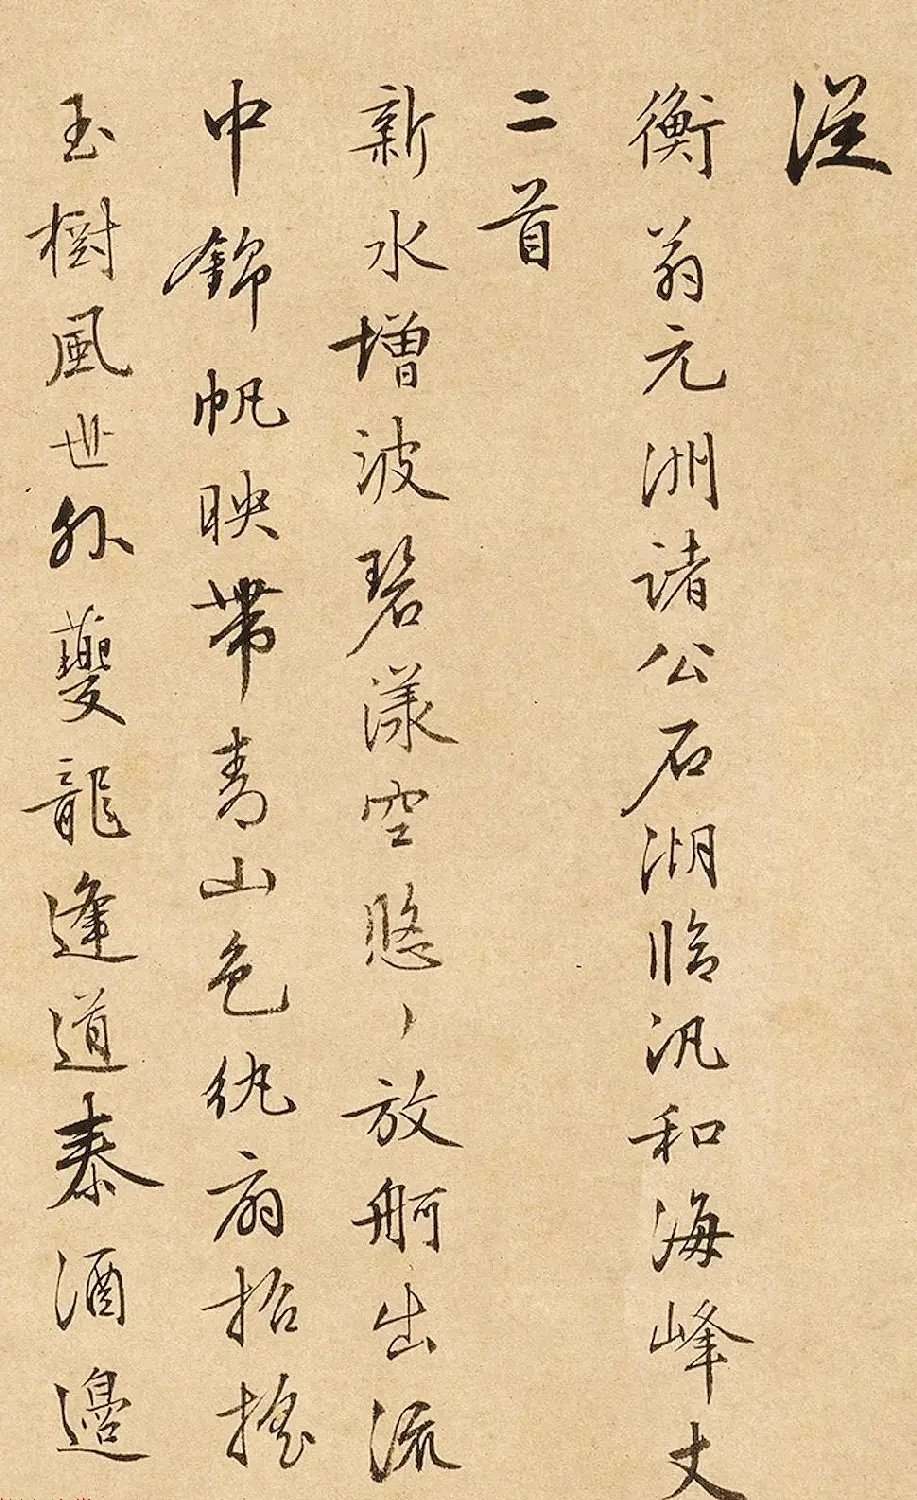 從
衡翁元洲諸公石湖臨汎和海峰丈
二首
新水增波碧漾空悠々放舸出流
中錦帆映帶青山色紈扇招搖
玉樹風世外夔龍逢道泰酒邊